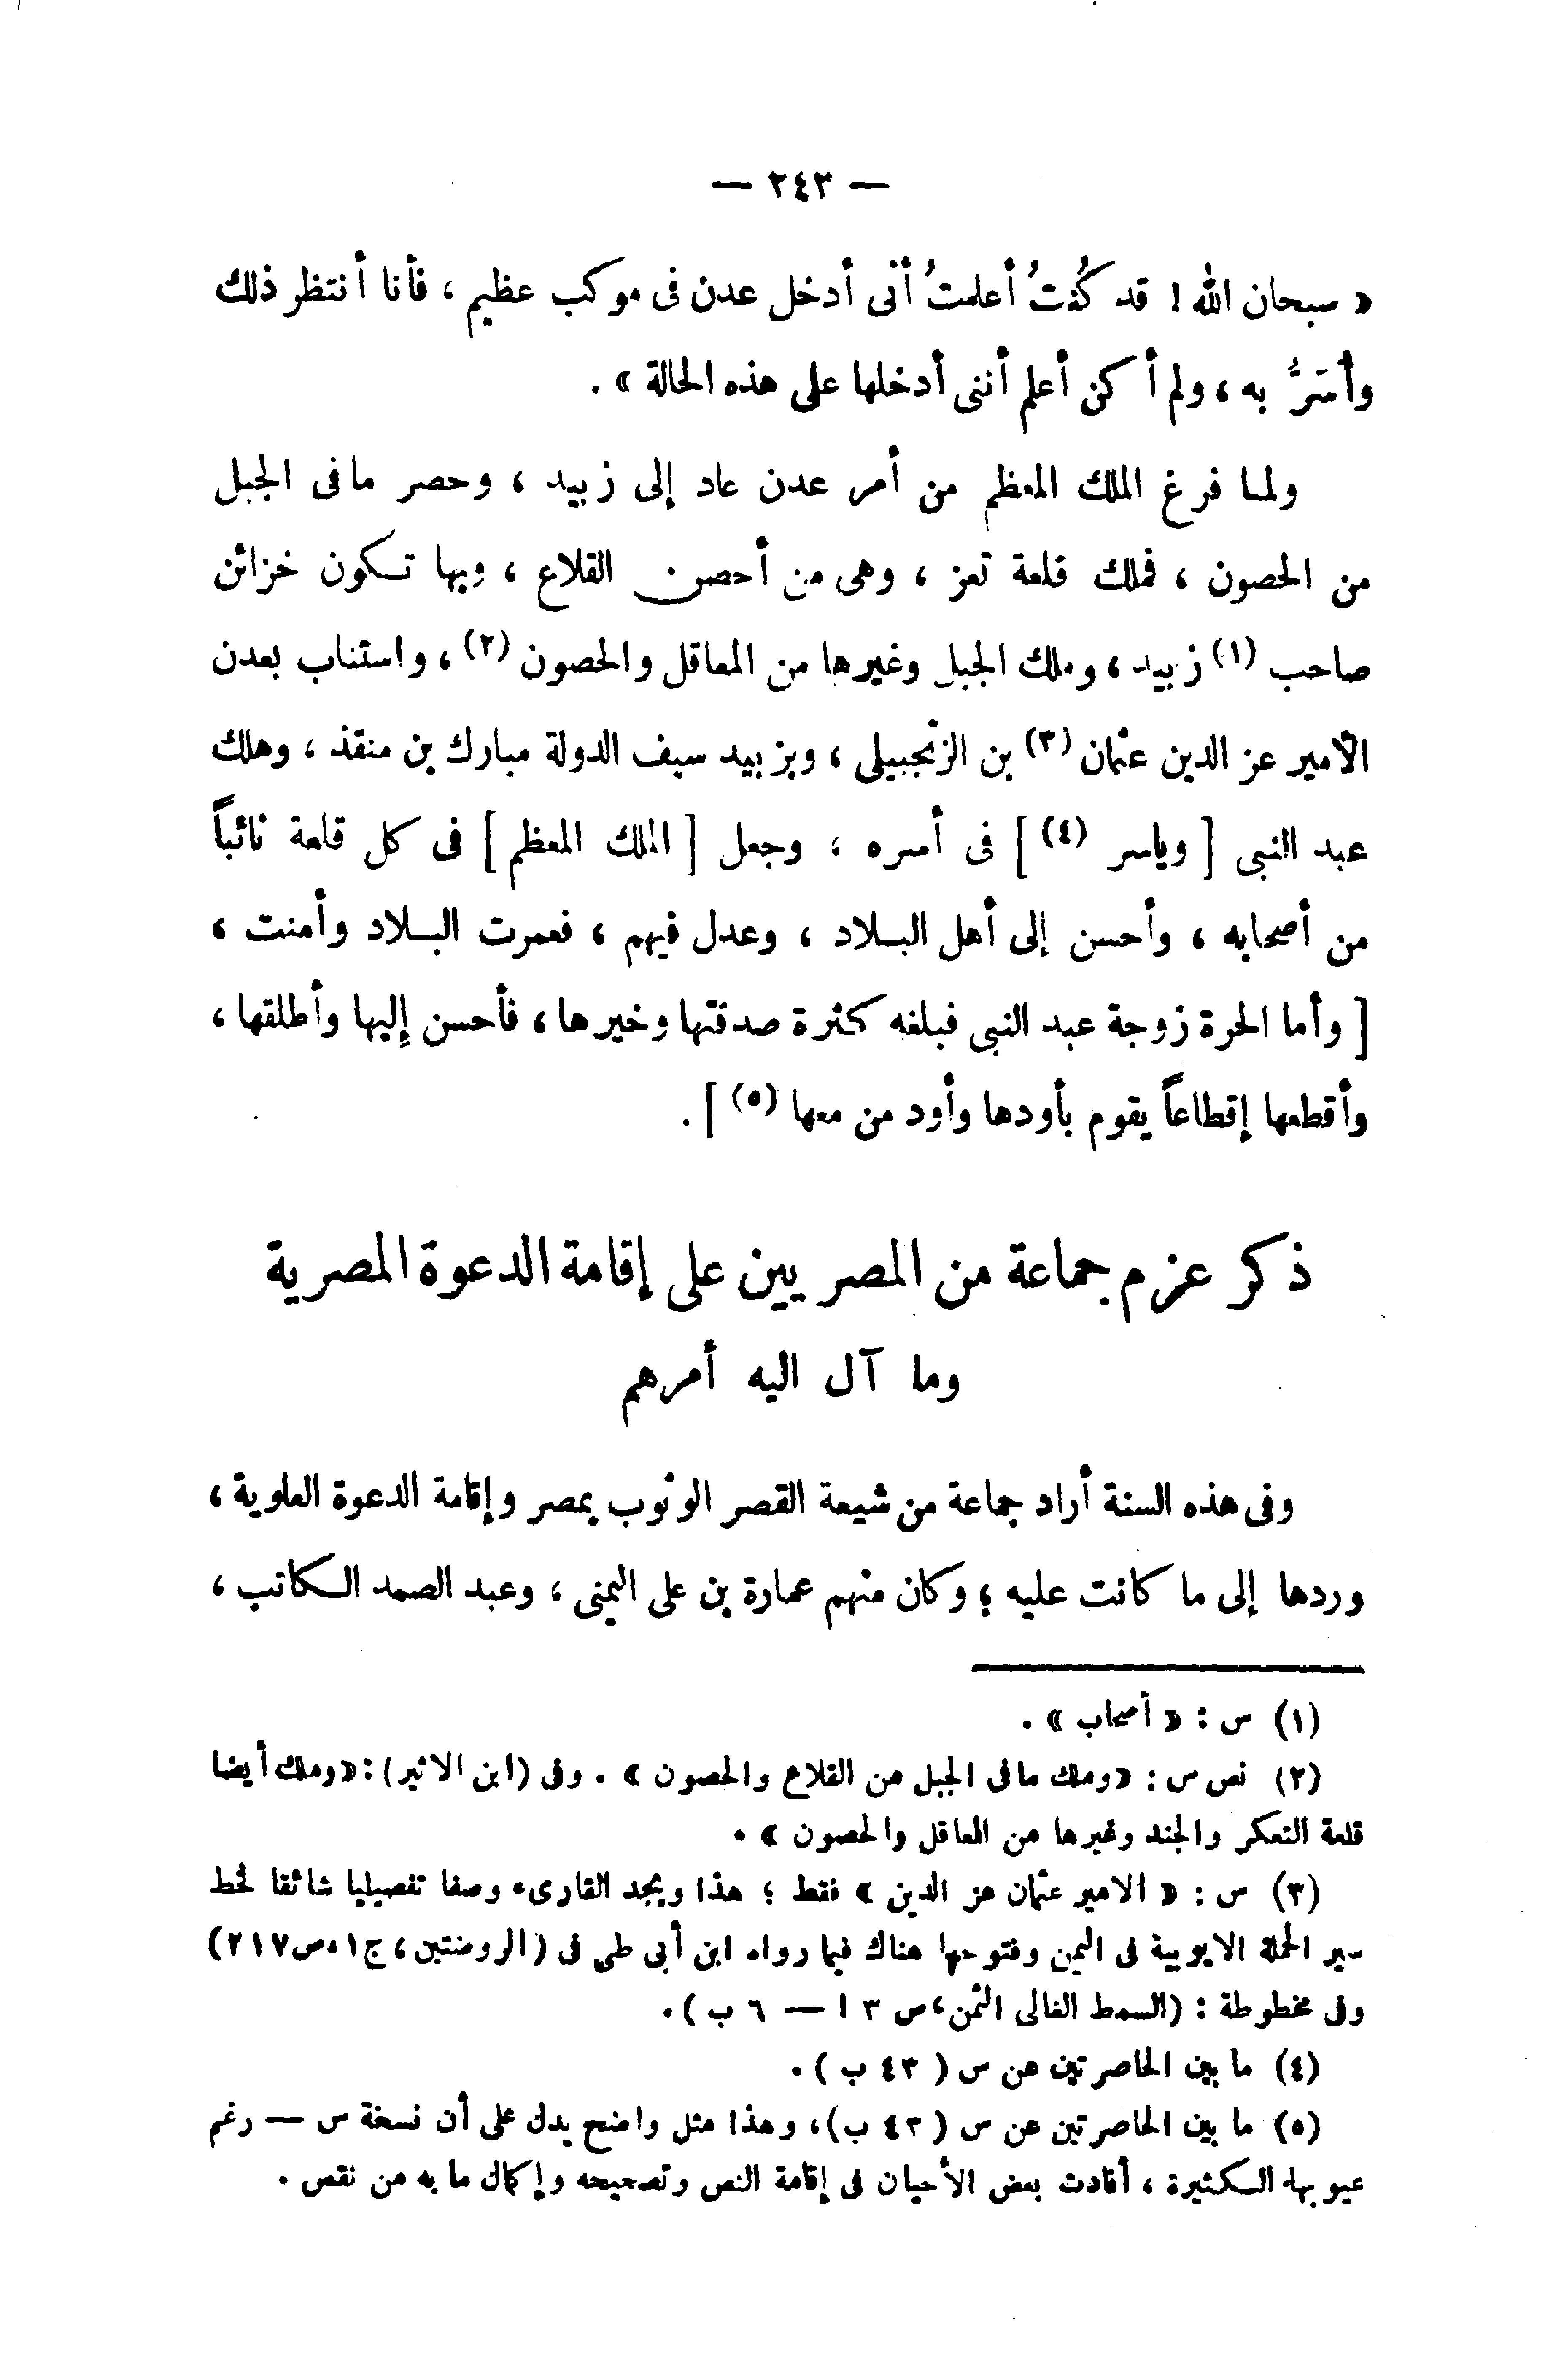 — ٢٤٣ —
« سبحان الله ! قد كُنتُ أعلمتُ أنى أدخل عدن فى موكب عظيم ، فأنا أنتظر ذلك
وأُسَرُّ به ، ولم أكن أعلم أننى أدخلها على هذه الحالة » .
ولما فرغ الملك المعظم من أمر عدن عاد إلى زبيد ، وحصر ما فى الجبل
من الحصون ، فملك قلعة تعز ، وهى من أحصن القلاع ، وبها تكون خزائن
صاحب (١) زبيد ، وملك الجبل وغيرها من المعاقل والحصون (٢) ، واستناب بعدن
الأمير عز الدين عثمان (٣) بن الزنجبيلى ، وبزبيد سيف الدولة مبارك بن منقذ ، وهلك
عبد النبى [ وياسر (٤) ] فى أسره ؛ وجعل [ الملك المعظم ] فى كل قلعة نائباً
من أصحابه ، وأحسن إلى أهل البلاد ، وعدل فيهم ، فعمرت البلاد وأمنت ،
[ وأما الحرة زوجة عبد النبى فبلغه كثرة صدقتها وخيرها ، فأحسن إليها وأطلقها ،
وأقطعها إقطاعاً يقوم بأودها وأود من معها (٥) ] .
ذكر عزم جماعة من المصريين على إقامة الدعوة المصرية
وما آل اليه أمرهم
وفى هذه السنة أراد جماعة من شيعة القصر الوثوب بمصر وإقامة الدعوة العلوية ،
وردها إلى ما كانت عليه ؛ وكان منهم عمارة بن على اليمنى ، وعبد الصمد الكاتب ،
(١) س : « أصحاب » .
(٢) نص س : « وملك ما فى الجبل من القلاع والحصون » . وفى (ابن الاثير) : « وملك أيضا
قلعة التعكر والجند وغيرها من المعاقل والحصون » .
(٣) س : « الامير عثمان عز الدين » فقط ؛ هذا ويجد القارىء وصفا تفصيليا شائقا لخط
سير الحملة الايوبية فى اليمن وفتوحها هناك فيما رواه ابن أبى طى فى (الروضتين ، ج ١ ، ص ٢١٧)
وفى مخطوطة : (السمط الغالى الثمن ، ص ٣ ا — ٦ ب ) .
(٤) ما بين الحاصرتين عن س ( ٤٣ ب ) .
(٥) ما بين الحاصرتين عن س ( ٤٣ ب ) ، وهذا مثل واضح يدل على أن نسخة س — رغم
عيوبها الكثيرة ، أفادت بعض الأحيان فى إقامة النص وتصحيحه وإكمال ما به من نقص .